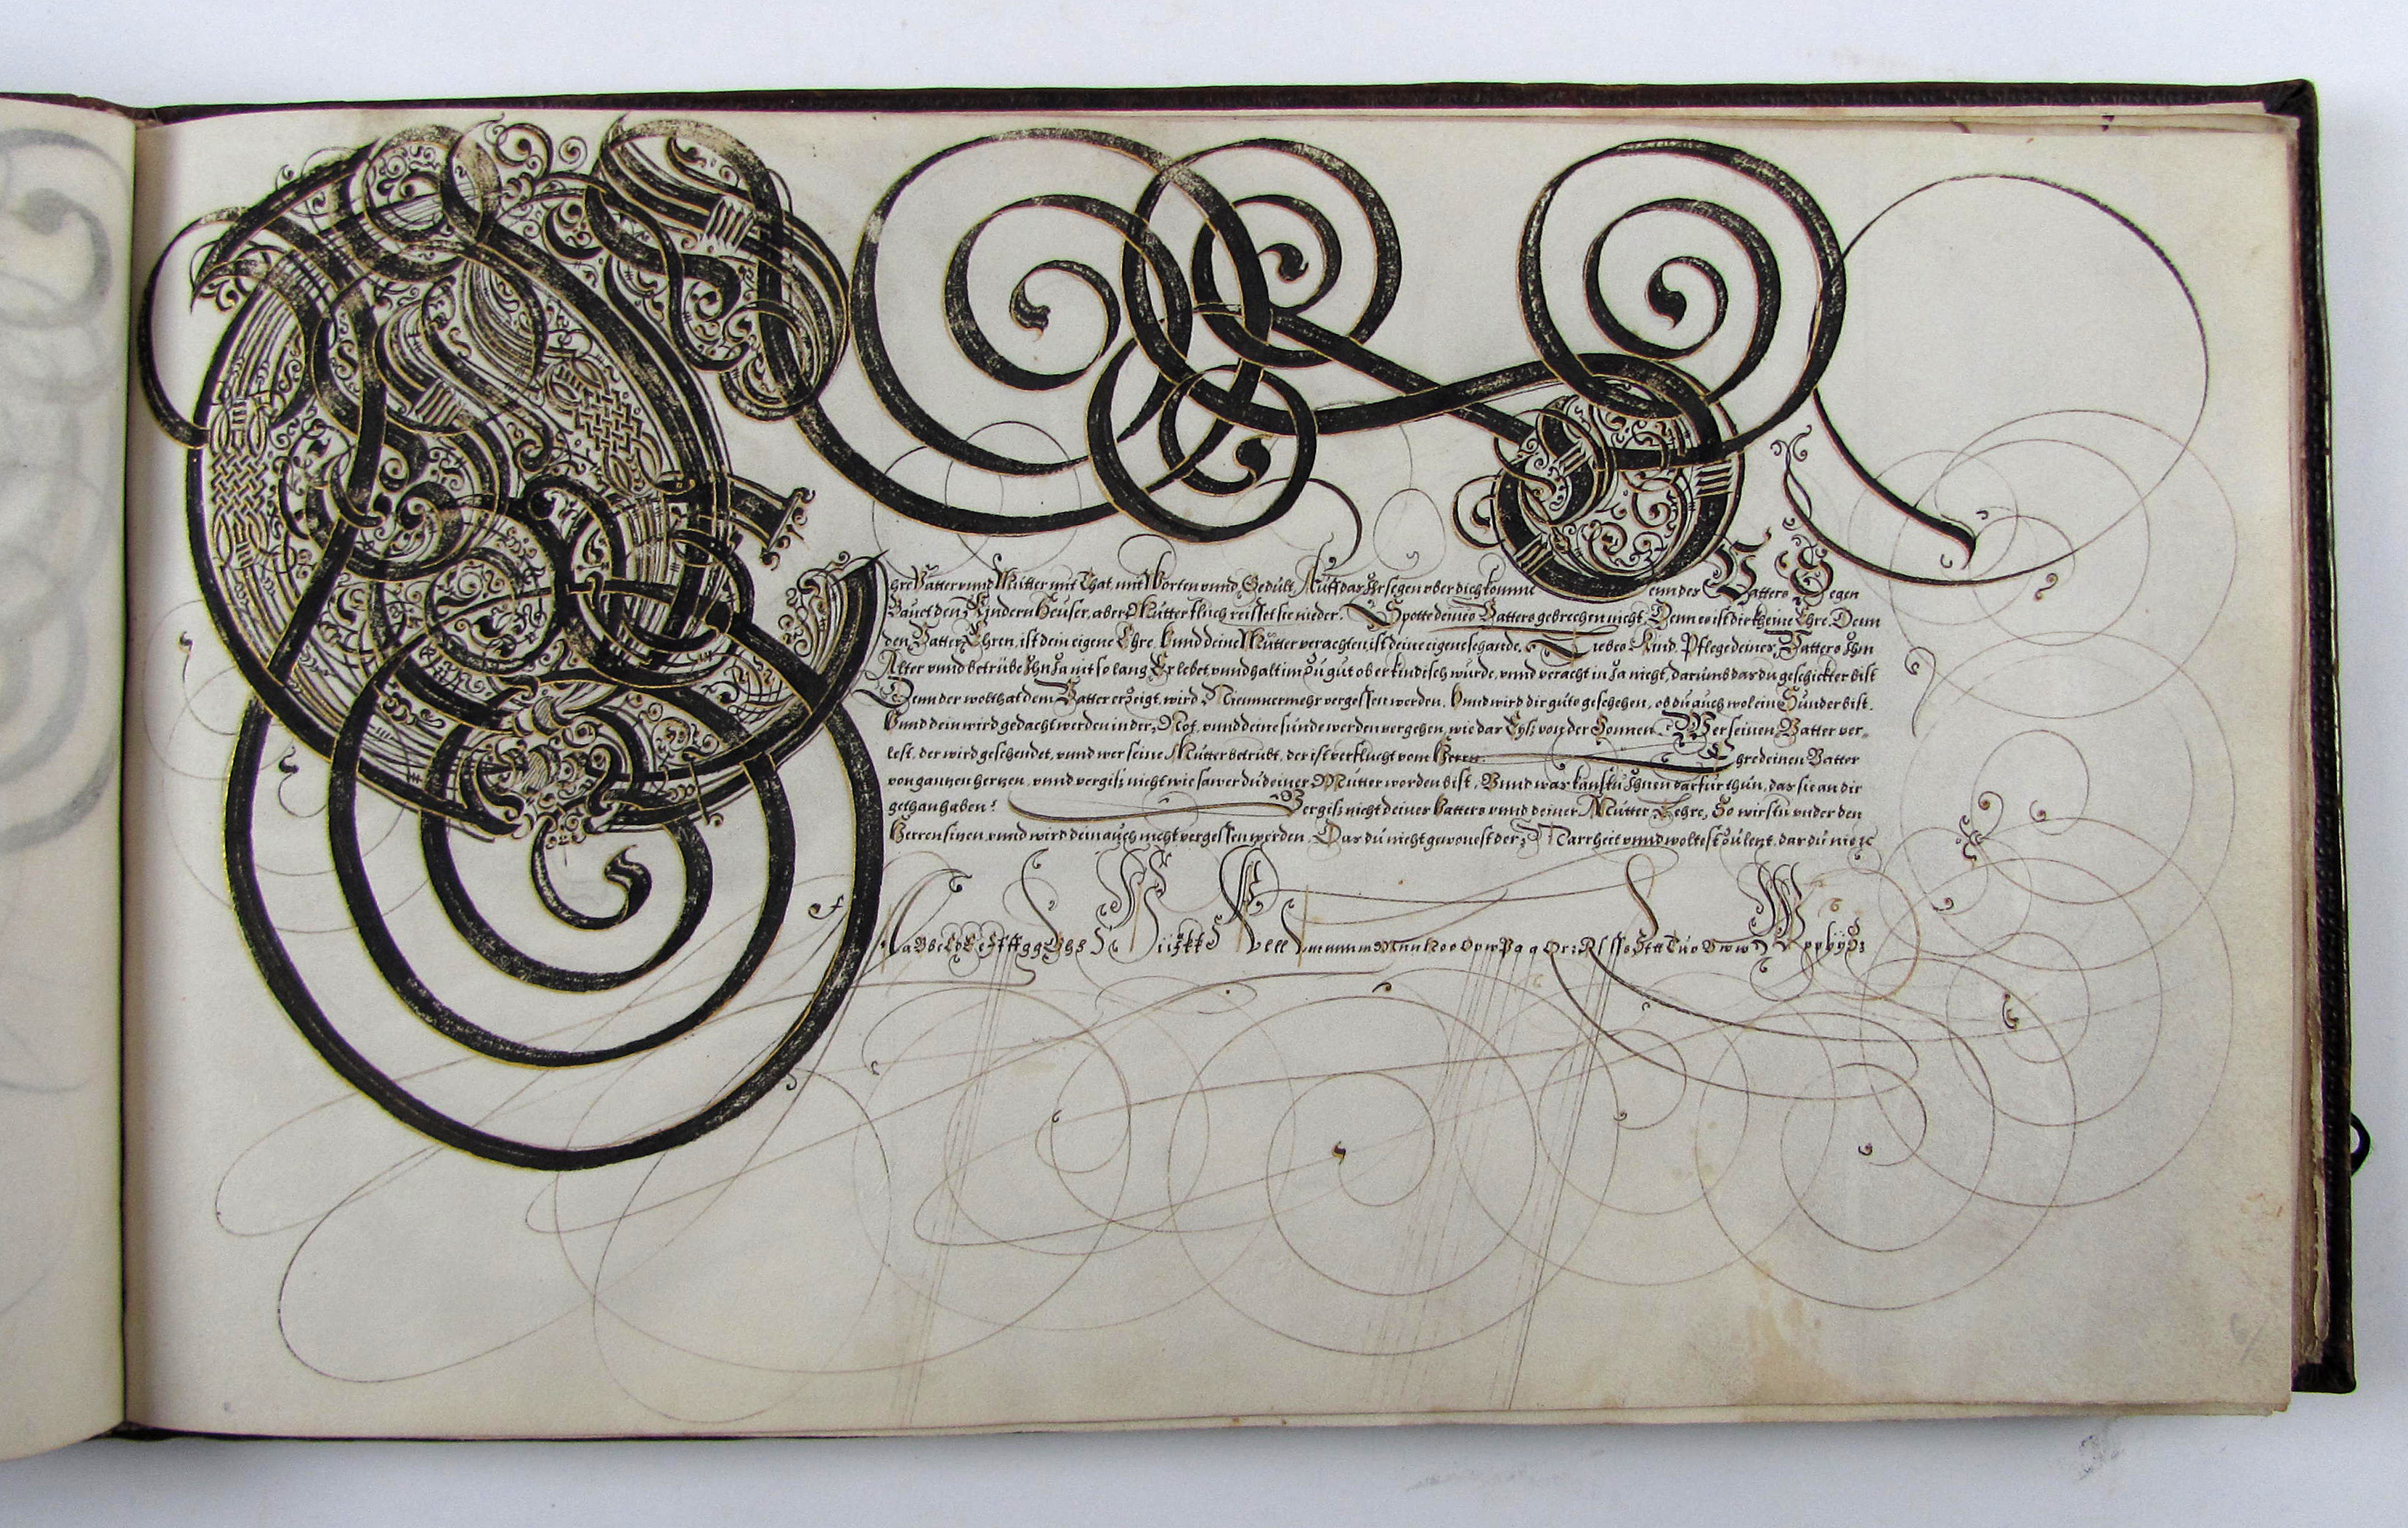 Ehre Vatter vnnd Mutter mit That, mit Worten vnnd Gedult, Auff das Ihr segen vber dich komme Denn des Vatters Segen
Bauet den Kindern Heuser, aber Mutter fluch reisset sie nieder. Spotte deines Vatters gebrechen nicht, Denn es ist dir kheine Ehre. Denn
den Vatter Ehren, ist dein eigene Ehre, Vnnd deine Mutter verachten, ist deine eigene schande. Liebes Kind, Pflege deines Vatters Ihm
Alter vnnd betrübe Ihn Ja nit so lang Er lebet, vnnd halt im zu gut ob er kindisch wurde, vnnd veracht in Ja nicht, darumb das du geschickter bist
Denn der wolthat dem Vatter erzeigt, wird Nimmermehr vergessen werden, Vnnd wird dir guts geschehen, ob du auch wol ein Sünder bist.
Vnnd dein wird gedacht werden in der Not, vnnd deine sünde werden vergehen, wie das Eyß von der Sonnen. Wer seinen Vatter ver-
lest, der wird geschendet, vnnd wer seine Mutter betrübt, der ist verflucht vom Herrn. Ehre deinen Vatter
von gantzen hertzen, vnnd vergiß nicht wie sawer du deiner Mutter worden bist, Vnnd was kanstu Ihnen darfür thun, das sie an dir
gethan haben? Vergiß nicht deines Vatters vnnd deiner Mutter Lehre, So wirstu vnder den
Herren sitzen, vnnd wird dein auch nicht vergessen werden, Das du nicht gewonest der Narrheit vnnd woltest zu letzt, das du nie ꝛc